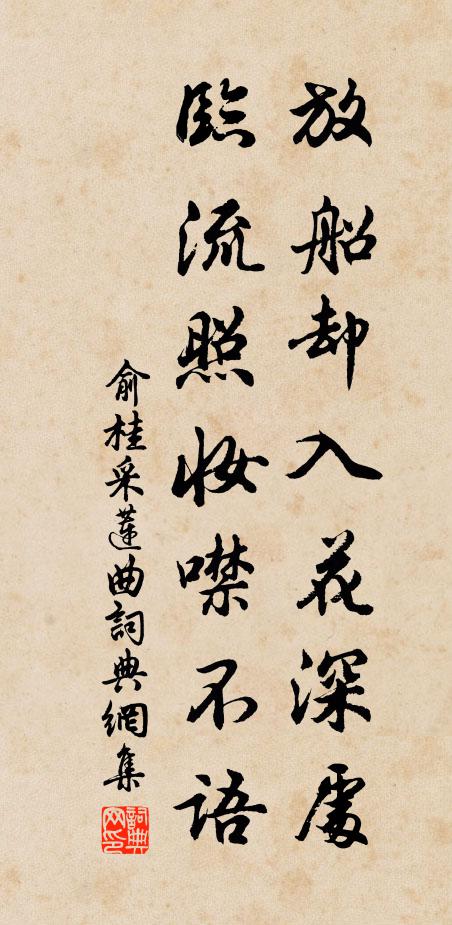 放船却入花深處
臨流照妝噤不語
俞桂采蓮曲詞典網集
詞典網印